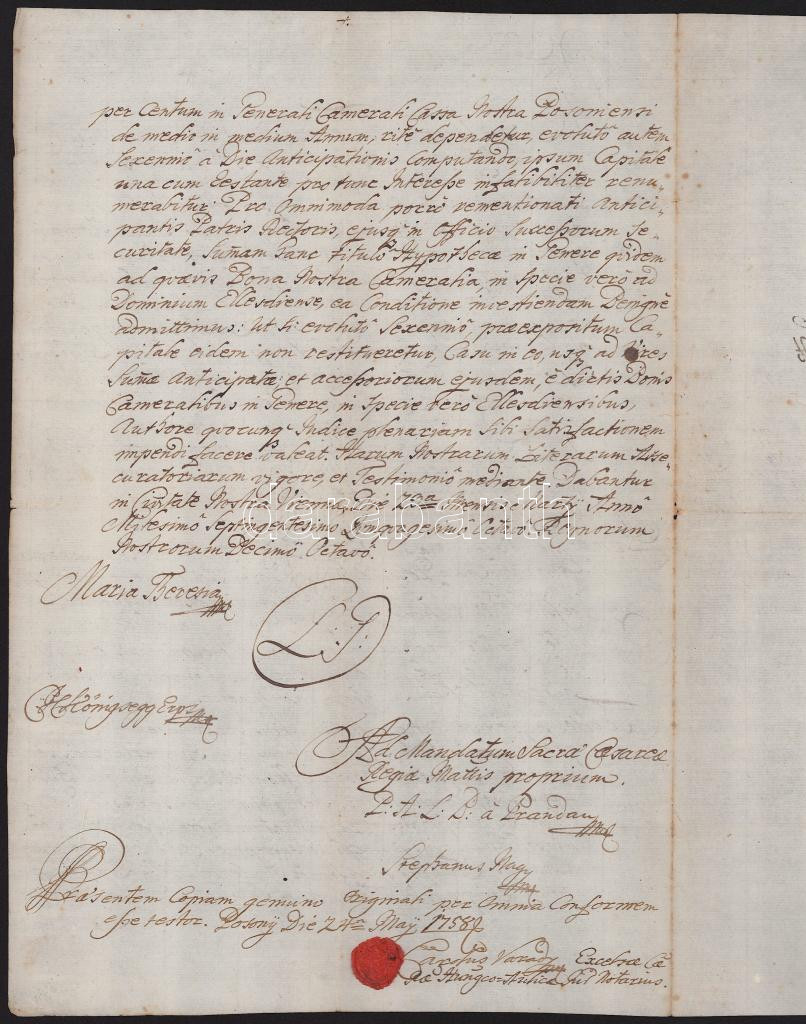 per Centum in Generali Camerali Cassa Nostra Posoniensi
de medio in medium Annum, ritè dependetur, evolutô autem
Sexenniô â Die Anticipationis Computando, ipsum Capitale
una cum restante pro tunc Interesse infalibiliter renu„
merabitur: Pro Omnimoda porrò rementionati Antici„
pantis Patris Rectoris, ejusq in Officio Successorum Se„
curitate, Sum̃am hanc titulô Hypothecæ in Genere quidem
ad quævis Bona Nostra Cameralia, in Specie verò ad
Dominium Ellesdiense, ea Conditione investiendam Benignè
admittimus: Ut Si evolutô Sexenniô, præexpositum Ca„
pitale eidem non restitueretur, Casu in eo, usq ad Vires
Sum̃æ Anticipatæ et accessoriorum ejusdem, è dictis Bonis
Cameralibus in Genere, in Specie verò Ellesdiensibus,
Authore quocunq Judice plenariam Sibi Satisfactionem
impendi facere valeat. Harum Nostrarum Literarum Asse„
curatoriarum vigore, et Testimoniô mediante. Dabantur
in Civitate Nostra Vienna, Die Mensis Martÿ Annô
Millesimo Septingentesimo Quinquagesimô Octavô. Regnorum
Nostrorum Decimô Octavô.
Maria Theresia
L: S:
Königsegg Erps
Ad Mandatum Sacræ Cæsareæ
Regiæ Mattis proprium.
P: A: L: B: â Prandau
Stephanus Nagy
Præsentem Copiam genuino Originali per Omnia Conformem
esse testor. Posonÿ Die 24ta Maÿ 1758
Carolus Varady Excelsæ Ca
ræ Hungco-Aulicæ Jur Notarius.
darabanth